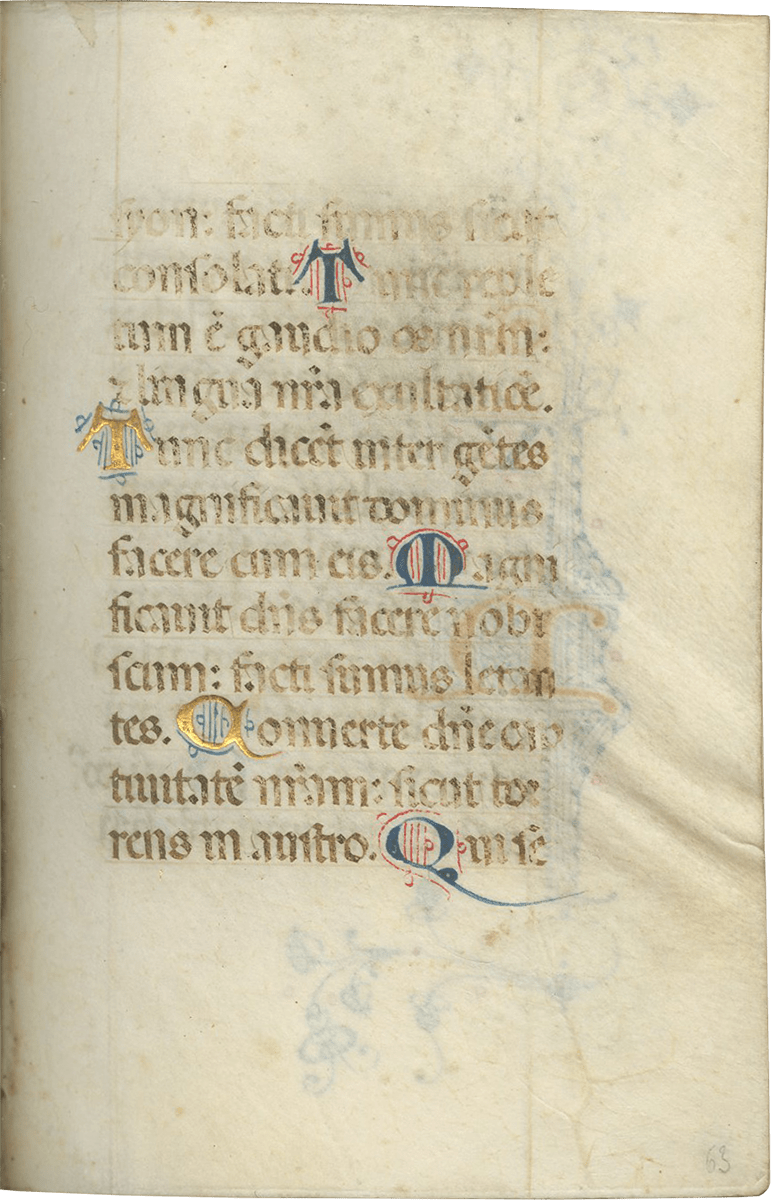 syon: facti sumus sicut
consolati. Tunc reple
tum ē gaudio os nr̄m:
⁊ lingua nr̄a exultatiōe.
Tunc dicēt inter gētes
magnificauit dominus
facere cum eis. Magni
ficauit dn̄s facere nobi
scum: facti sumus letan
tes. Conuerte dn̄e cap
tiuitatē nr̄am: sicut tor
rens in austro. Qui sē
63